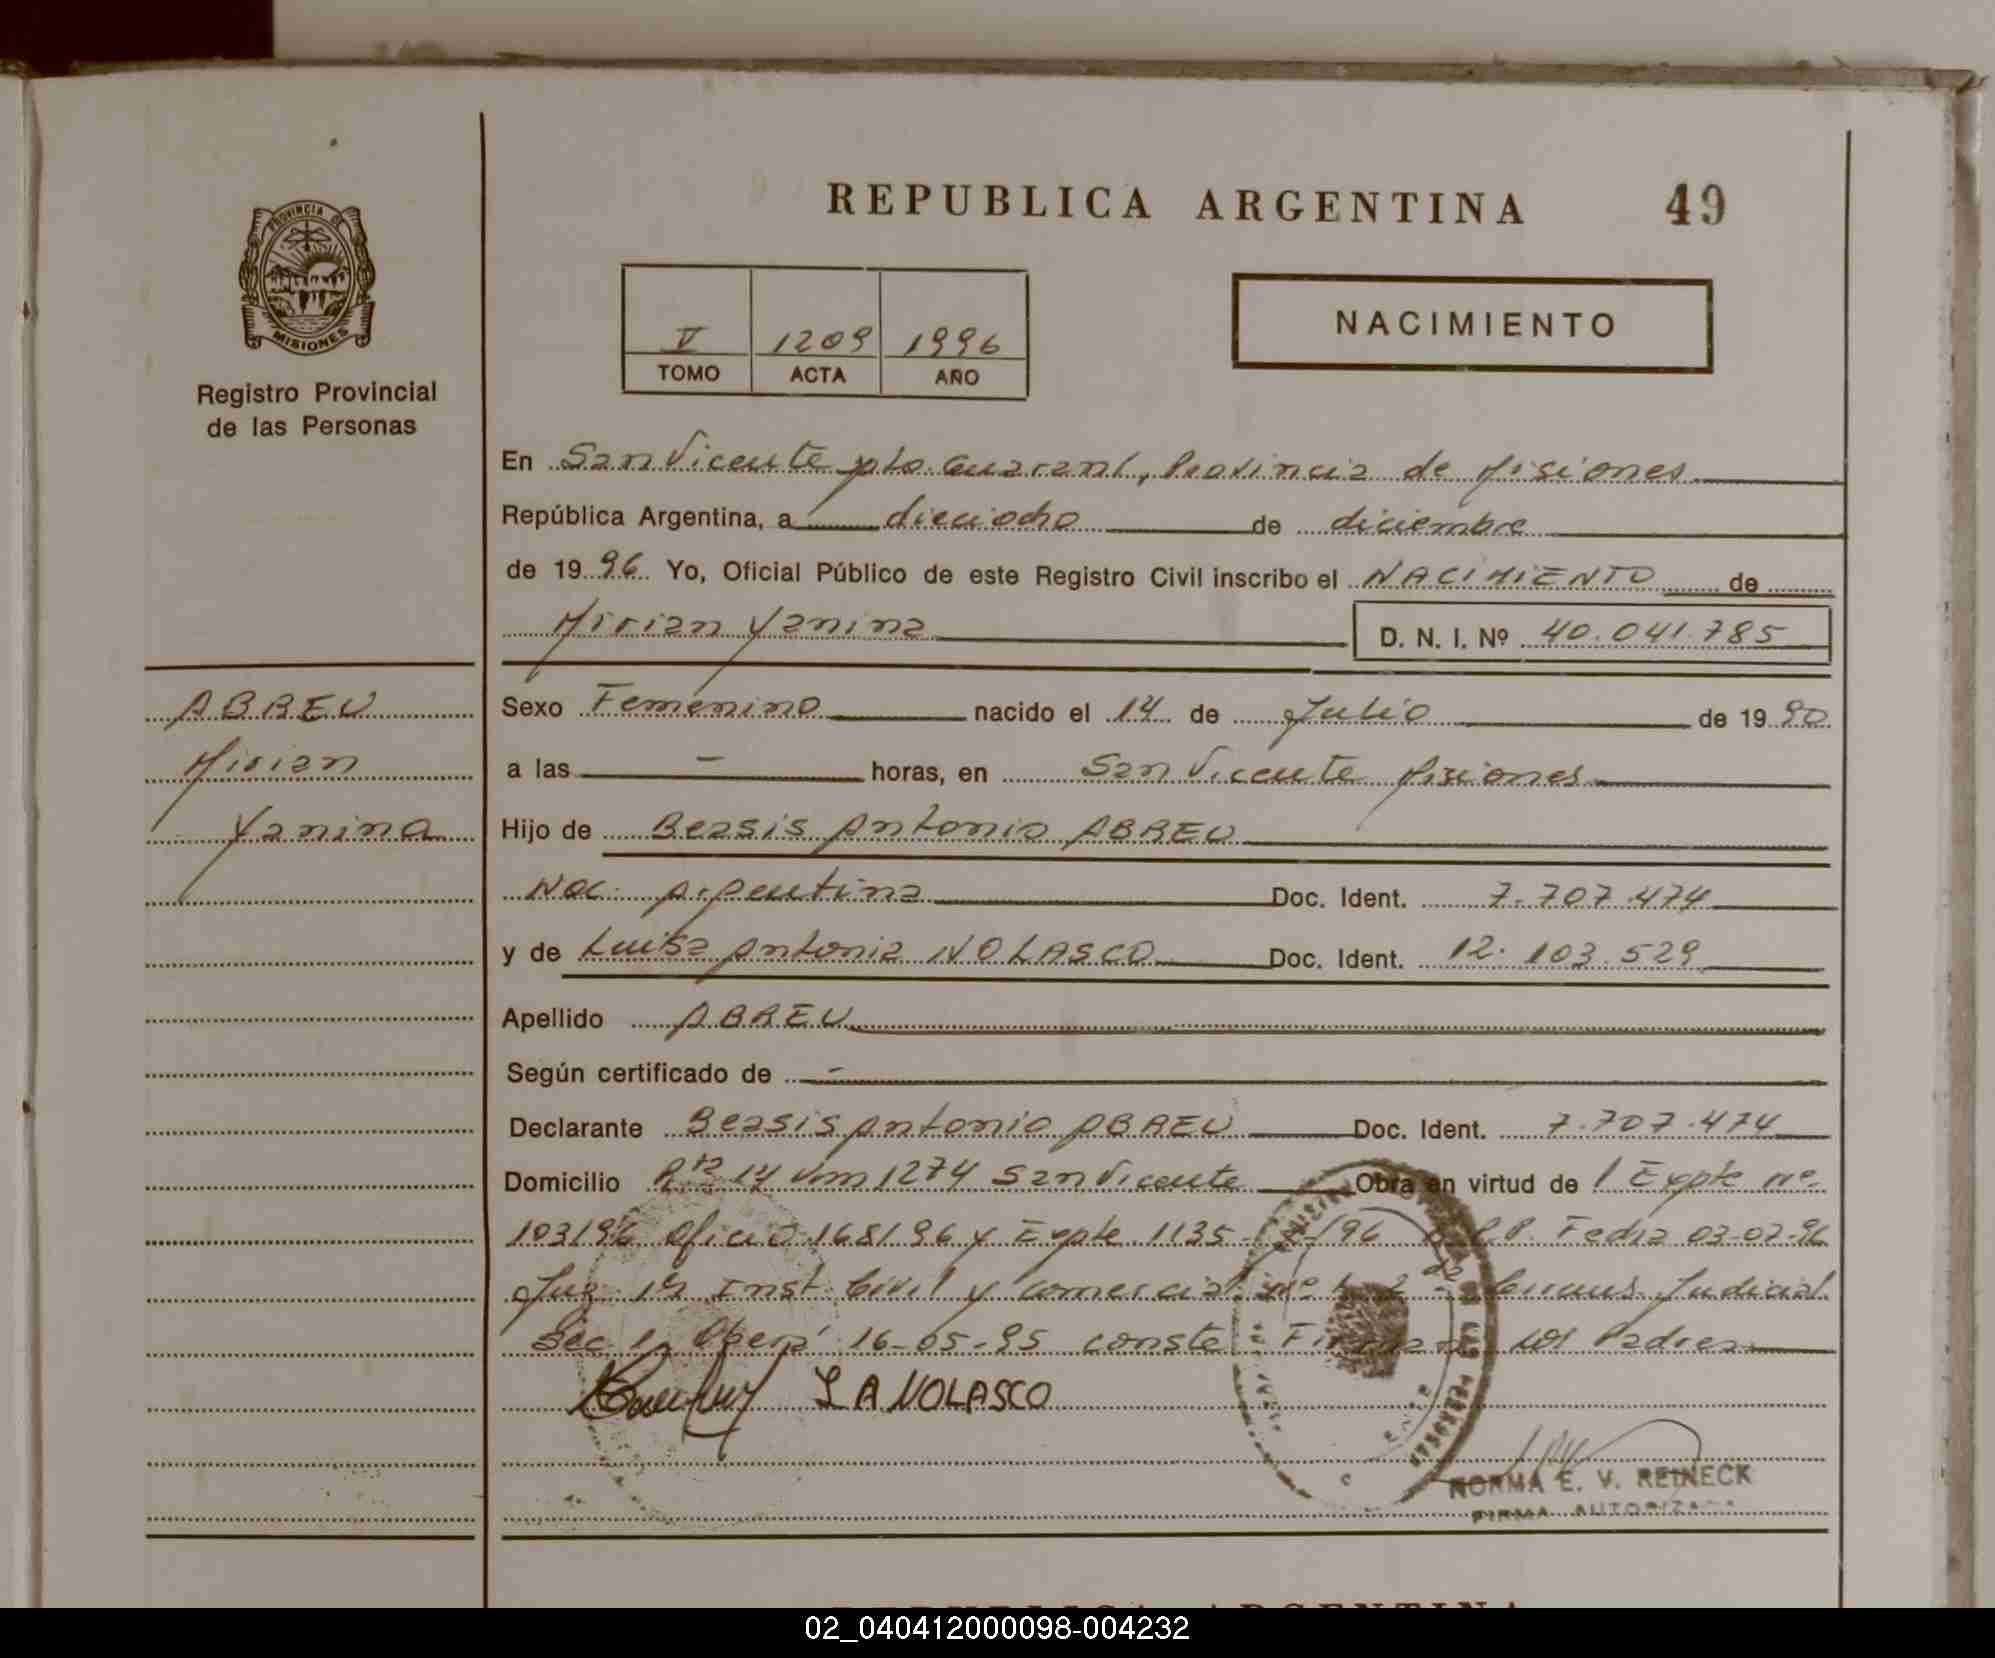 REPUBLICA ARGENTINA 49
PROVINCIA DE
MISIONES
Registro Provincial
de las Personas
V 1209 1996
TOMO ACTA AÑO
NACIMIENTO
En San Vicente pto Guaraní, Provincia de Misiones
República Argentina, a dieciocho de diciembre
de 1996 Yo, Oficial Público de este Registro Civil inscribo el NACIMIENTO de
Mirian Yanina D. N. I. Nº 40.041.785
ABREU
Mirian
Yanina
Sexo Femenino nacido el 14 de Julio de 1990
a las - horas, en San Vicente Misiones
Hijo de Beasis Antonio ABREU
Nac. Argentina Doc. Ident. 7.707.474
y de Luisa Antonia NOLASCO Doc. Ident. 12.103.529
Apellido ABREU
Según certificado de -
Declarante Beasis Antonio ABREU Doc. Ident. 7.707.474
Domicilio Rta 14 Km 1274 San Vicente Obra en virtud de Expte nº
103/96 Oficio 168/96 y Expte 1135 /96 R.P.P. Fecha 03-07-96
Juz 1ª Inst. Civil y Comercial nº 2 Circuns. Judicial
Sec 1 Oberá 16-05-95 conste Firman los Padres
L A NOLASCO
NORMA E. V. REINECK
FIRMA AUTORIZADA
REPUBLICA ARGENTINA
02_040412000098-004232